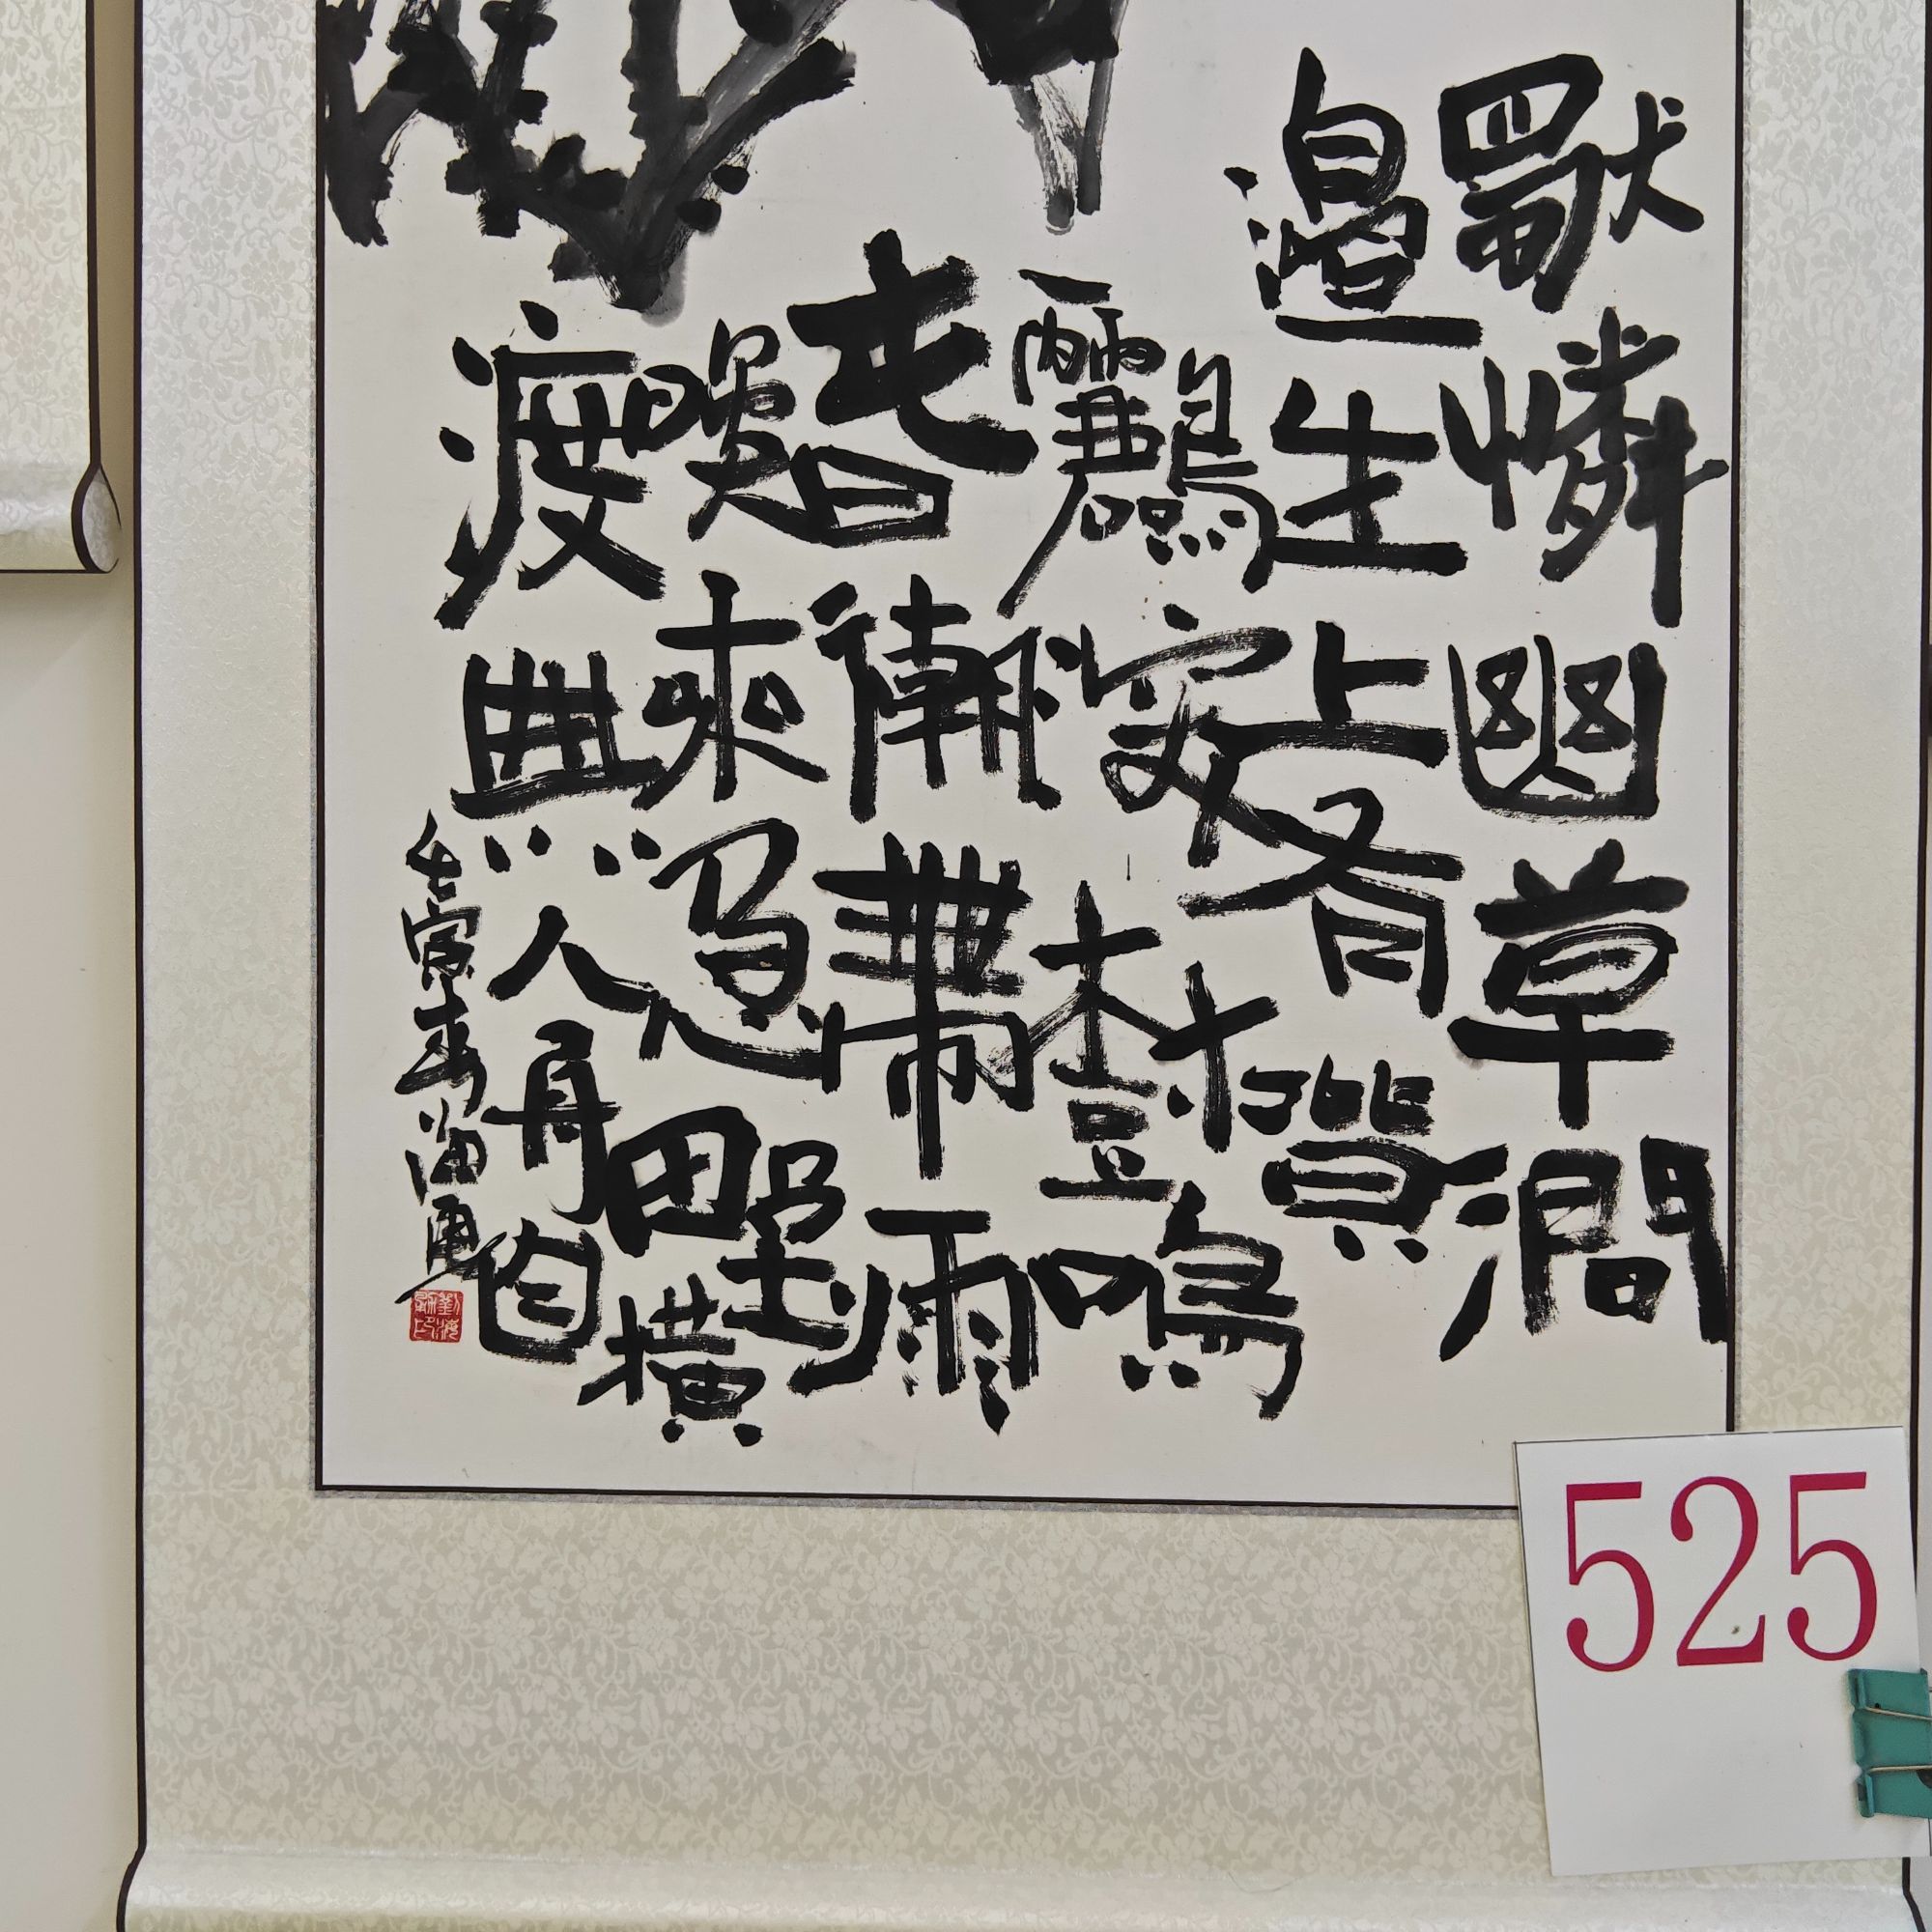 獨憐幽草澗
邊生上有黃
鸝深樹鳴
春潮帶雨
晚來急野
渡無人舟自橫
壬寅春海
525